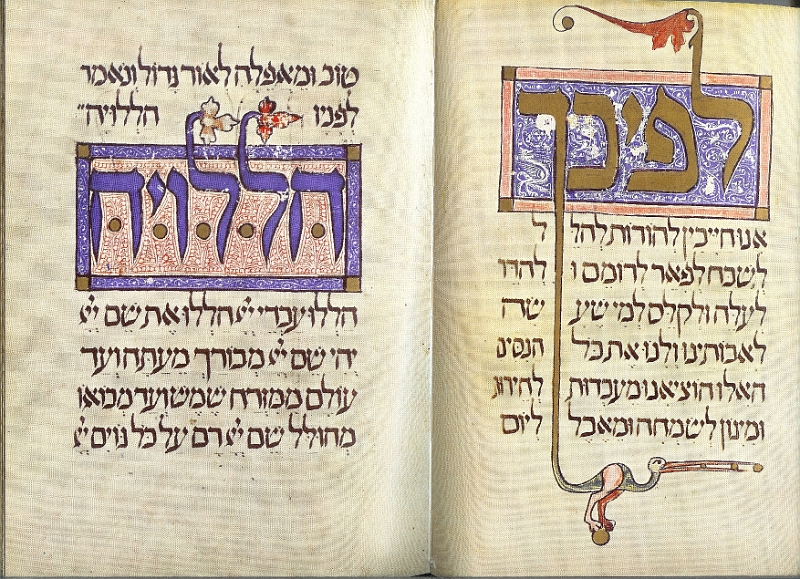 לפיכך
אנו חייבין להודות להל ל
לשבח לפאר לרומם ו להדר
לעלה ולקלס למי שע שה
לאבותינו ולנו את כל הנסים
האלו הוציאנו מעבדות לחירות
ומיגון לשמחה ומאבל ליום
טוב ומאפלה לאור גדול ונאמר
לפניו הללויה
הללויה
הללו עבדי ייי הללו את שם ייי
יהי שם ייי מבורך מעתה ועד
עולם ממזרח שמש ועד מבואו
מהולל שם ייי רם על כל גוים ייי